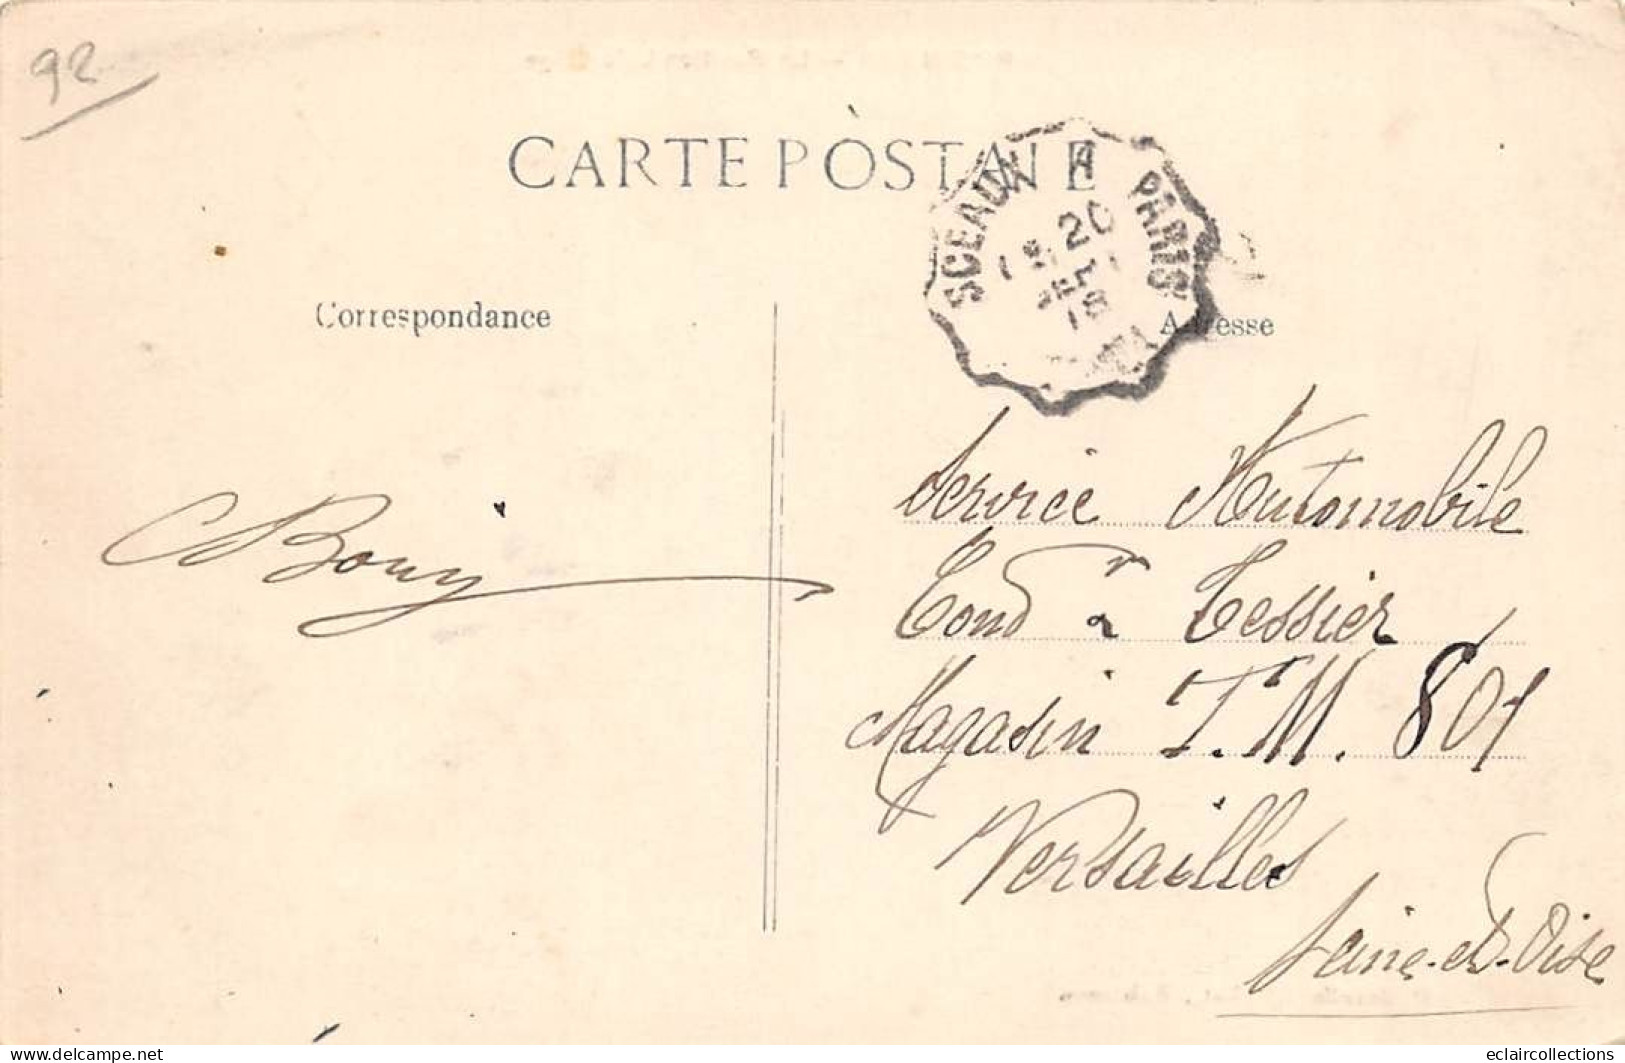 92
CARTE POSTALE
SCEAUX A PARIS
20
18
Correspondance
Adresse
Service Automobile
Cond r Tessier
Magasin T.M. 801
Versailles
Seine-et-Oise
eclaircollections